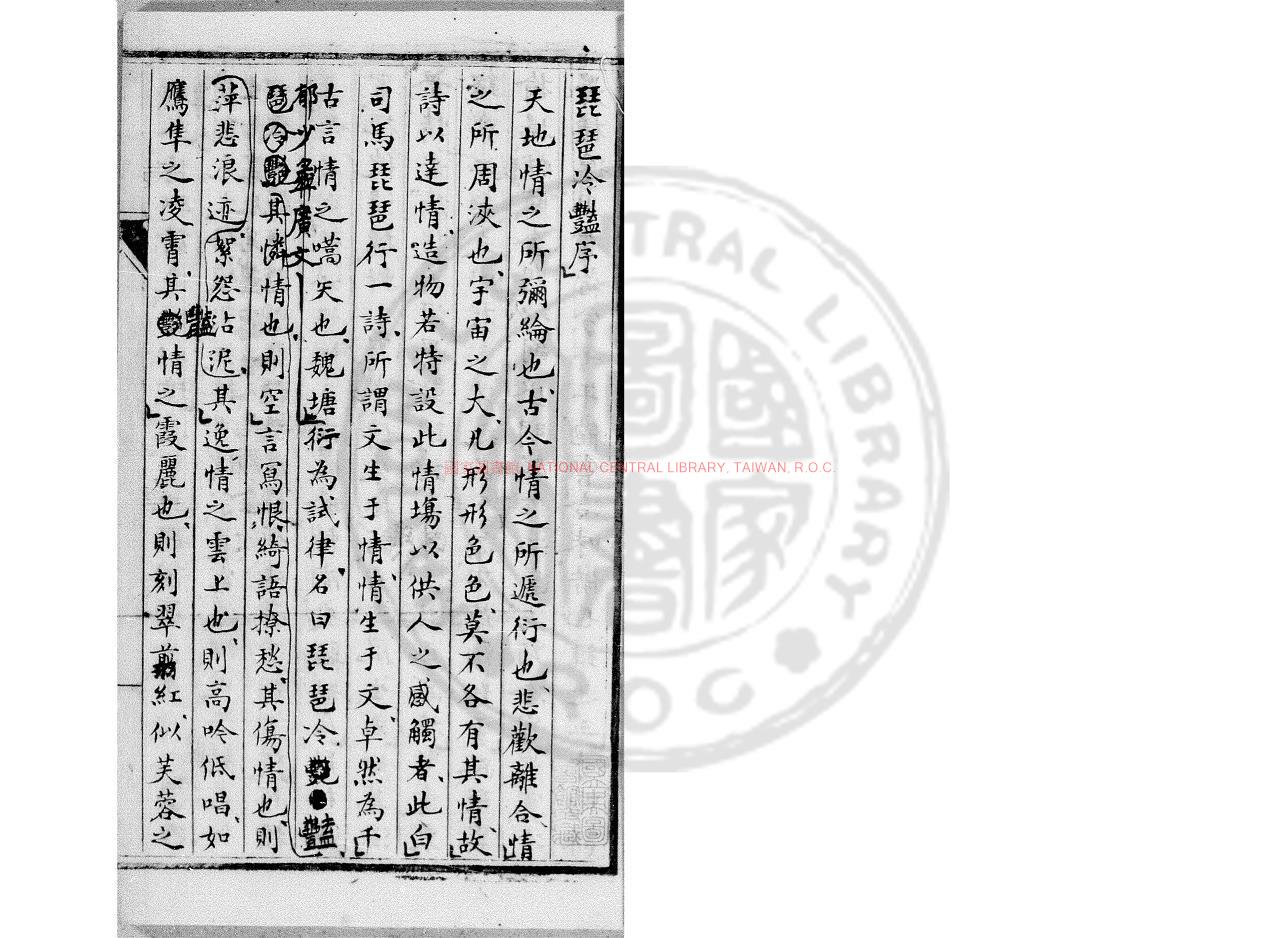 琵琶冷豔序
天地情之所彌綸也古今情之所遞衍也悲歡離合情
之所周浹也宇宙之大凡形形色色莫不各有其情故
詩以達情造物若特設此情場以供人之感觸者此白
司馬琵琶行一詩所謂文生于情情生于文卓然為千
古言情之嚆矢也魏塘衍為試律名曰琵琶冷豔
郁少彝廣文
琶冷豔其憐情也則空言寫恨綺語撩愁其傷情也則
萍悲浪迹絮怨沾泥其逸情之雲上也則高吟低唱如
鷹隼之凌霄其豔情之霞麗也則刻翠剪紅似芙蓉之
國家圖書館, NATIONAL CENTRAL LIBRARY, TAIWAN, R.O.C.